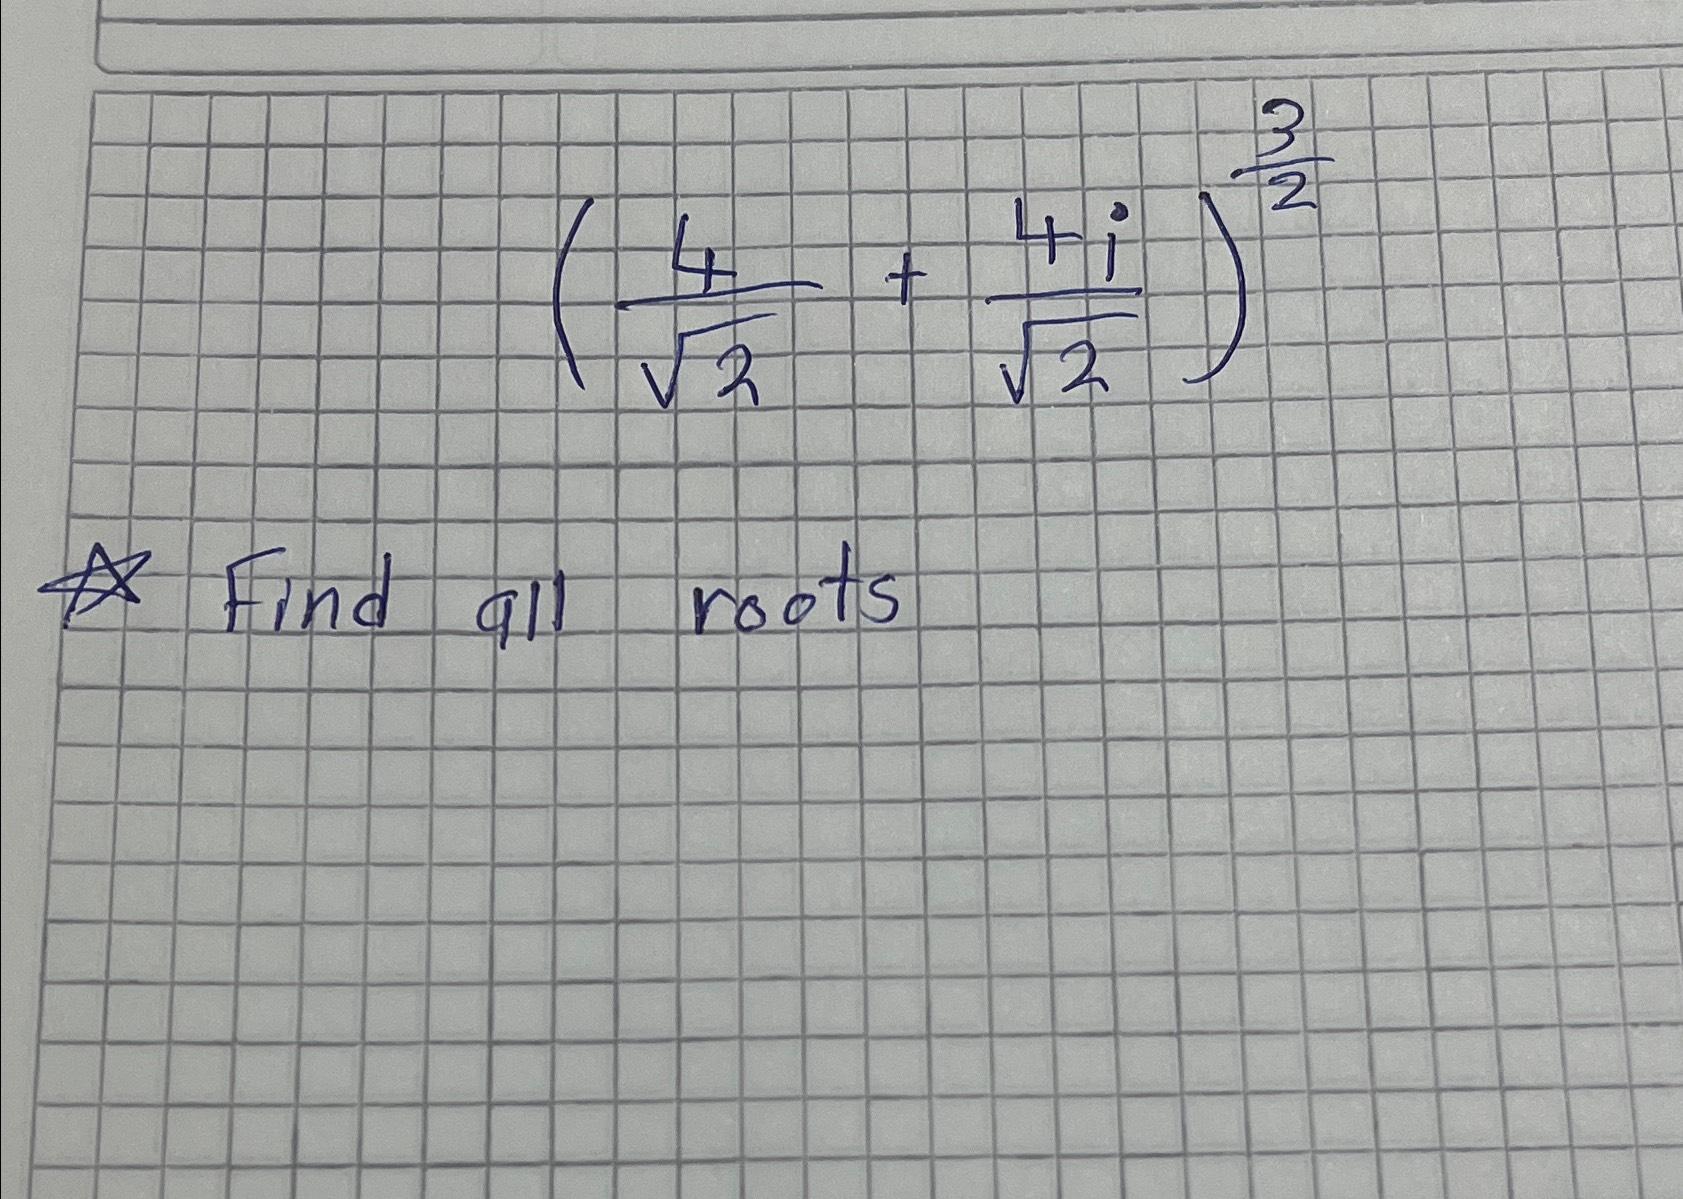 (4/√2 + 4i/√2)^(3/2)
☆ Find all roots